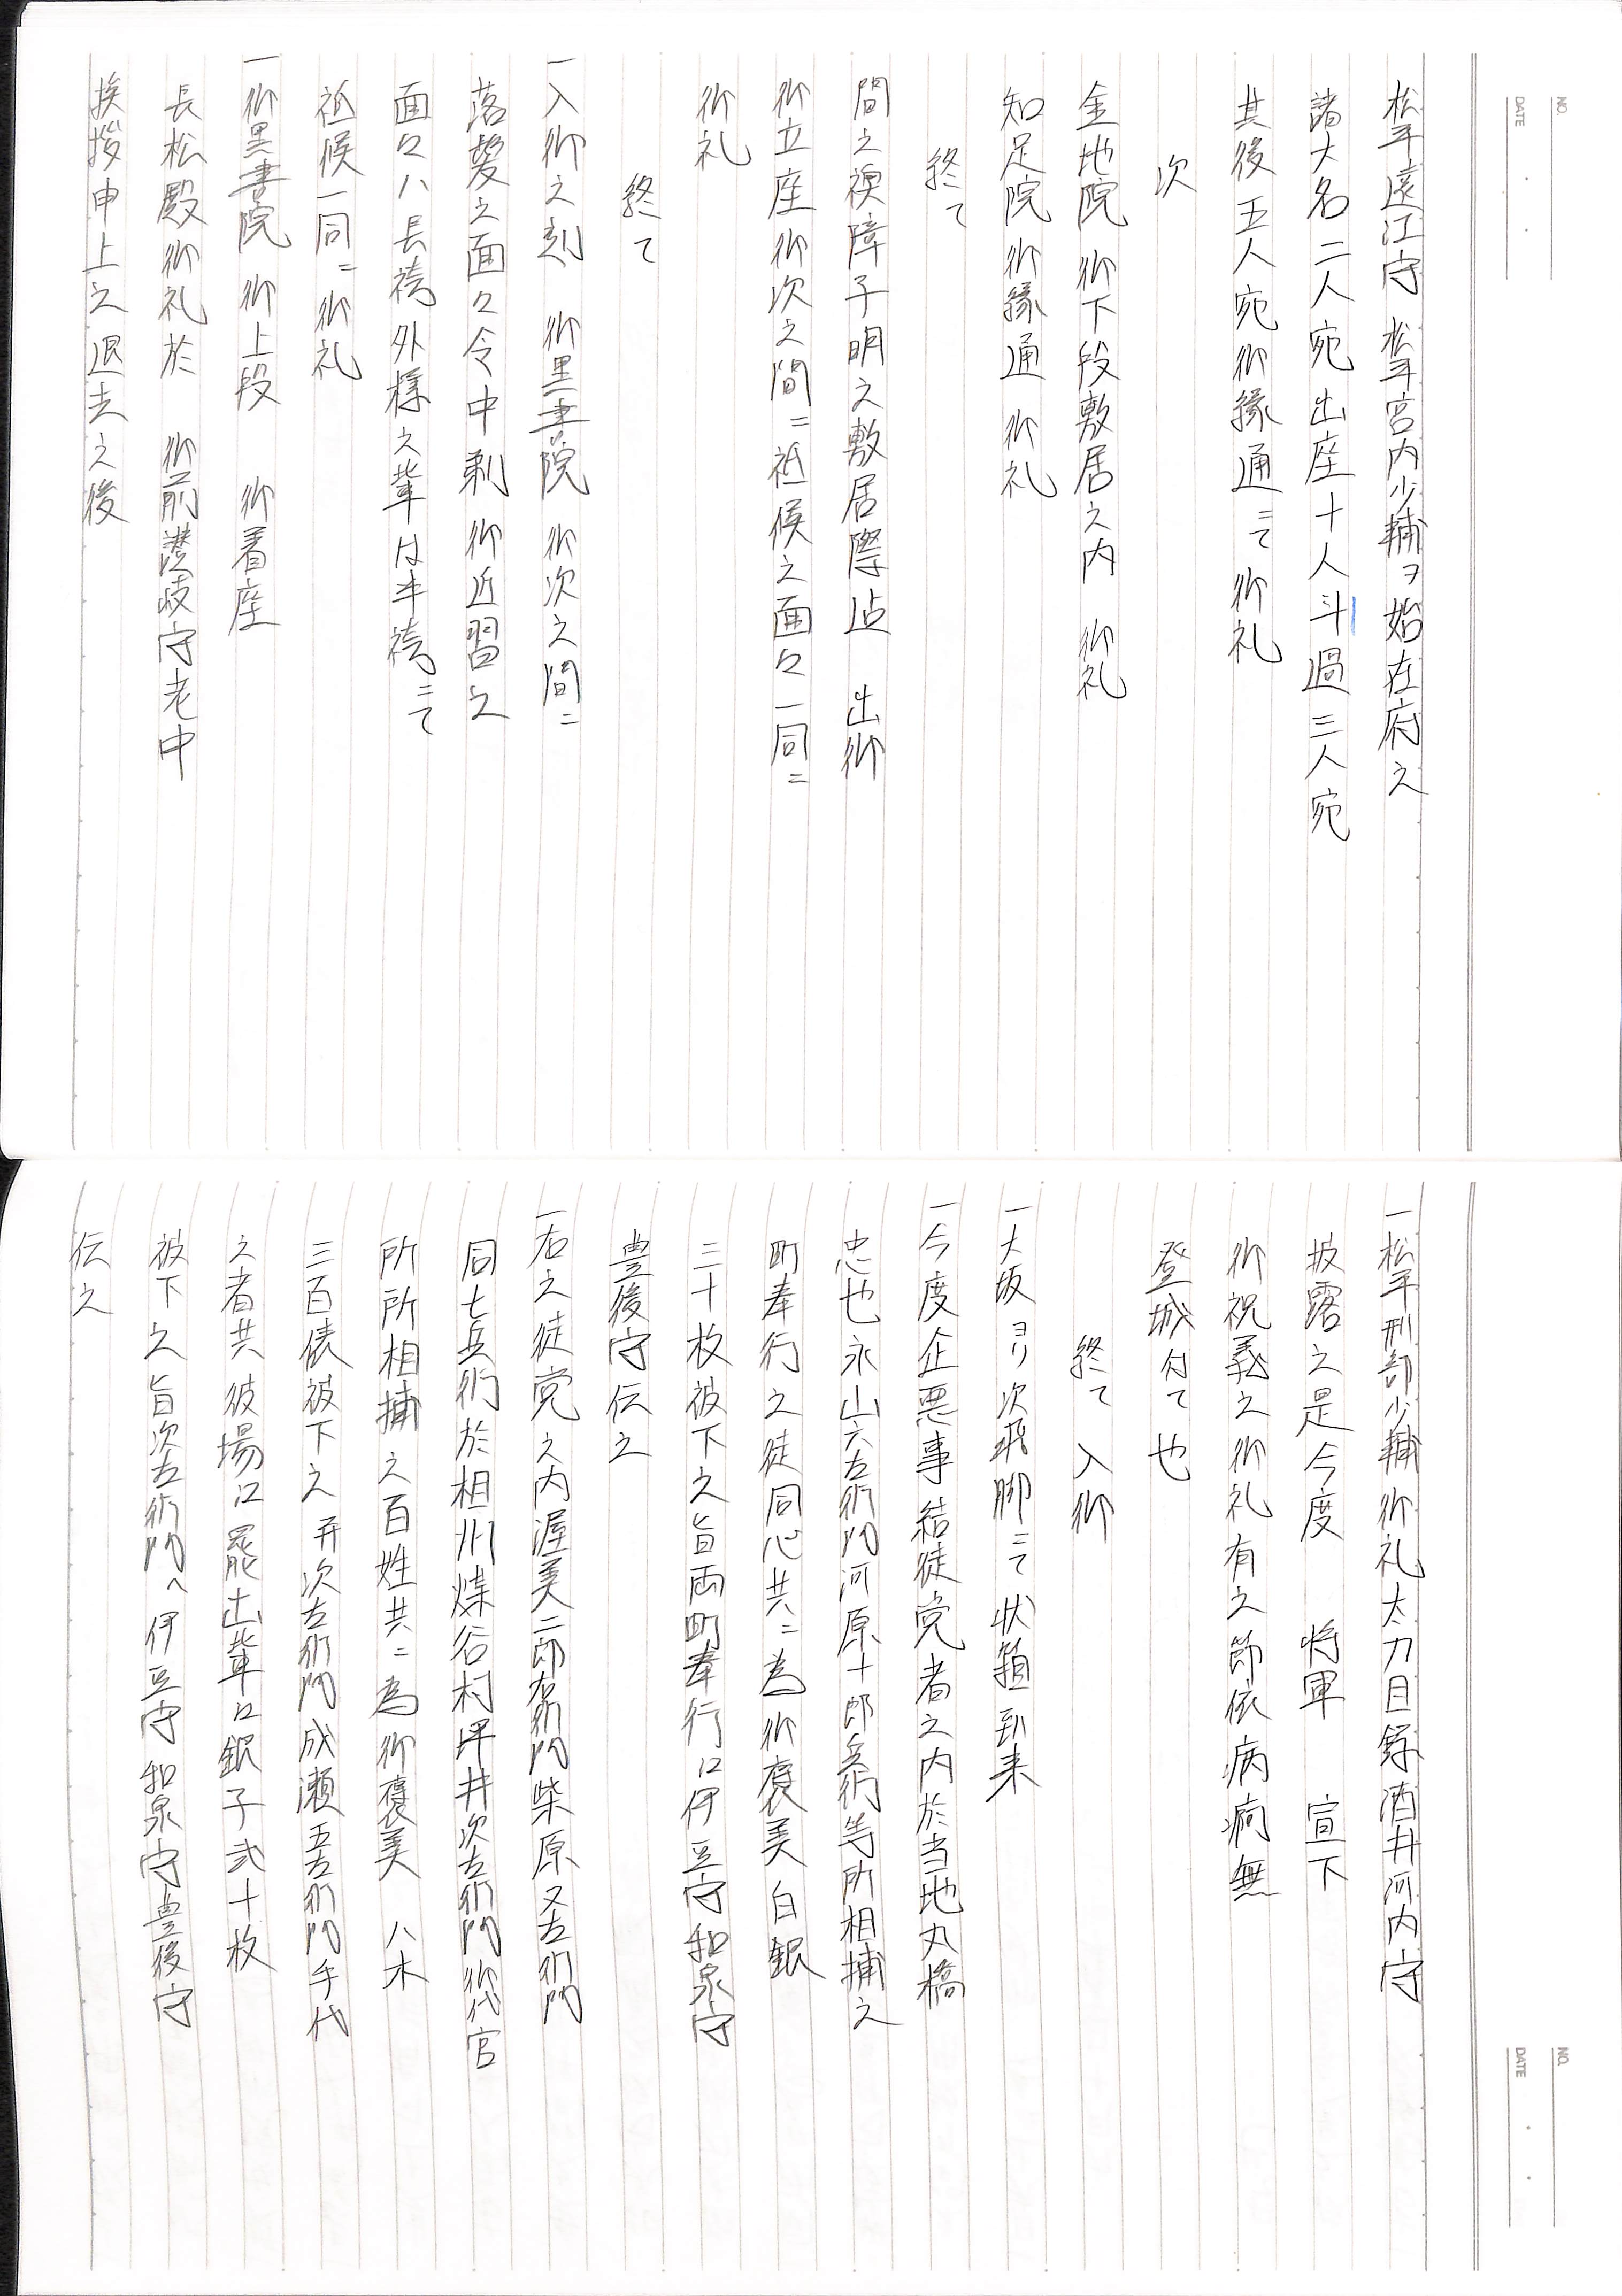 NO.
DATE
松平遠江守 松平宮内少輔ヲ始在府之
諸大名二人宛出座十人斗過三人宛
其後五人宛御縁通ニて御礼
次
金地院 御下段敷居之内 御礼
知足院 御縁通 御礼
終て
間之襖障子明之敷居際迠 出御
御立座御次之間ニ祗候之面々一同ニ
御礼
終て
一入御之刻 御黒書院 御次之間ニ
落髪之面々令中剃御近習之
面々ハ長袴外様之輩は半袴ニて
祗候一同ニ御礼
一御黒書院 御上段 御着座
長松殿御礼於 御前讃岐守老中
挨拶申上之退去之後
NO.
DATE
一松平刑部少輔御礼太刀目録酒井河内守
披露之是今度 将軍 宣下
御祝義之御礼有之節依病痾無
登城付て也
終て 入御
一大坂ヨリ次飛脚ニて状箱到来
一今度企悪事結徒党者之内於当地丸橋
忠也永山六左衛門河原十郎兵衛等所相捕之
町奉行之徒同心共ニ為御褒美白銀
三十枚被下之旨両町奉行江伊豆守和泉守
豊後守伝之
一右之徒党之内渥美二郎右衛門柴原又左衛門
同七兵衛於相州煤谷村坪井次左衛門御代官
所所相捕之百姓共ニ為御褒美 八木
三百俵被下之并次左衛門成瀬五左衛門手代
之者共彼場江罷出輩江銀子弐十枚
被下之旨次左衛門へ伊豆守和泉守豊後守
伝之